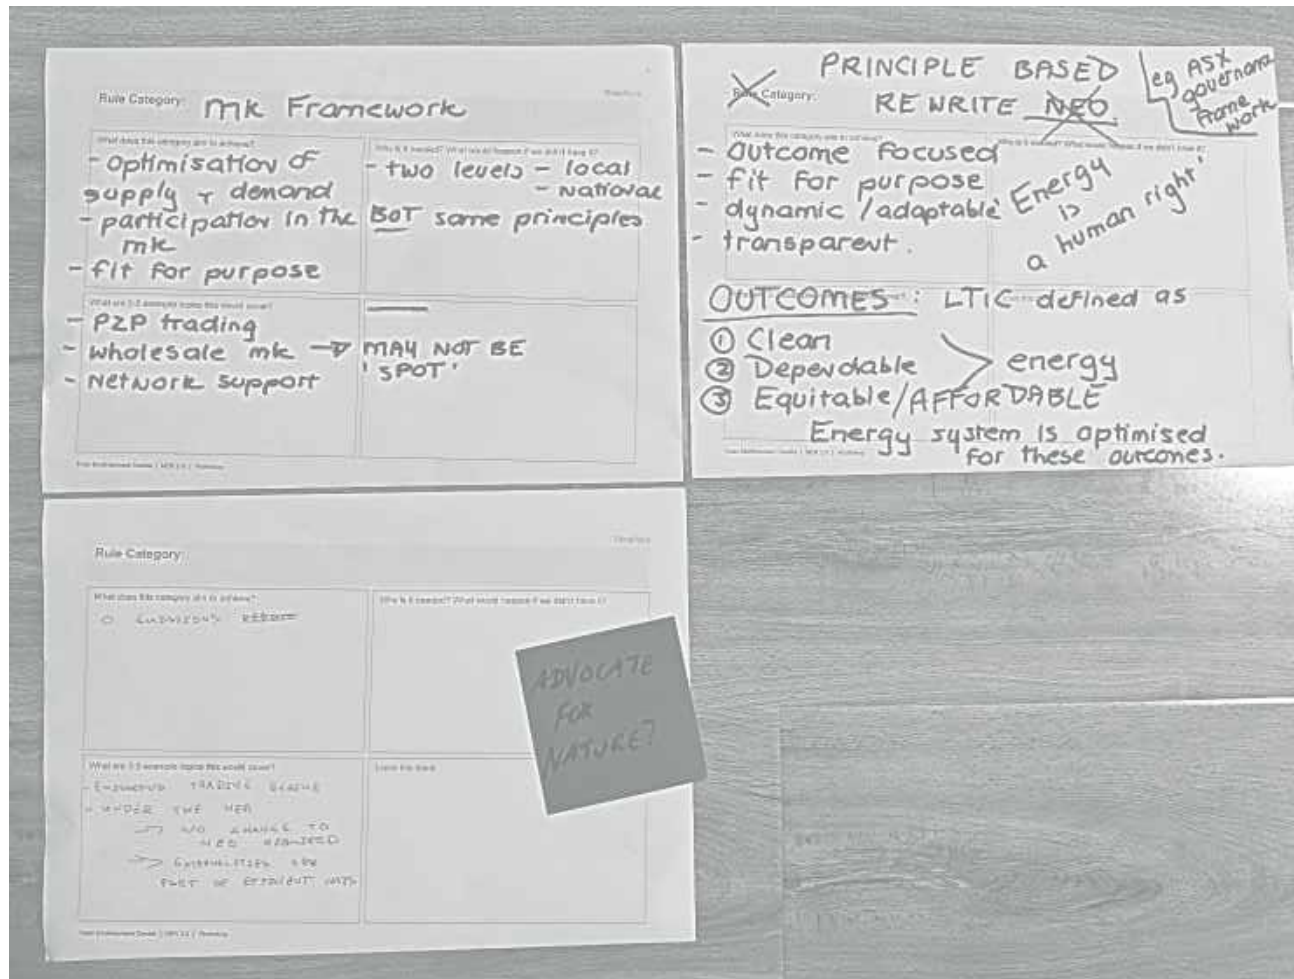 Rule Category: mk Framework
What does this category aim to achieve?
- Optimisation of
supply + demand
- participation in the
mk
- fit for purpose
Why is it needed? What would happen if we didn't have it?
- two levels - local
- national
BOT same principles
What are 3-5 example topics this would cover?
- P2P trading
- wholesale mk → MAY NOT BE
'SPOT'
- Network support
PRINCIPLE BASED
Rule Category: REWRITE NEO
eg ASX
governance
frame
work
What does this category aim to achieve?
- Outcome focused
- fit for purpose
- dynamic / adaptable
- transparent.
'Energy
is
a human right'
OUTCOMES: LTIC defined as
① Clean
② Dependable
③ Equitable/AFFORDABLE
energy
Energy system is optimised
for these outcomes.
Rule Category:
What does this category aim to achieve?
Why is it needed? What would happen if we didn't have it?
What are 3-5 example topics this would cover?
TRADING
- UNDER THE
→ NO CHANGE TO
NEO REQUIRED
PART OF EFFICIENT COSTS
Leave this blank
ADVOCATE
FOR
NATURE?